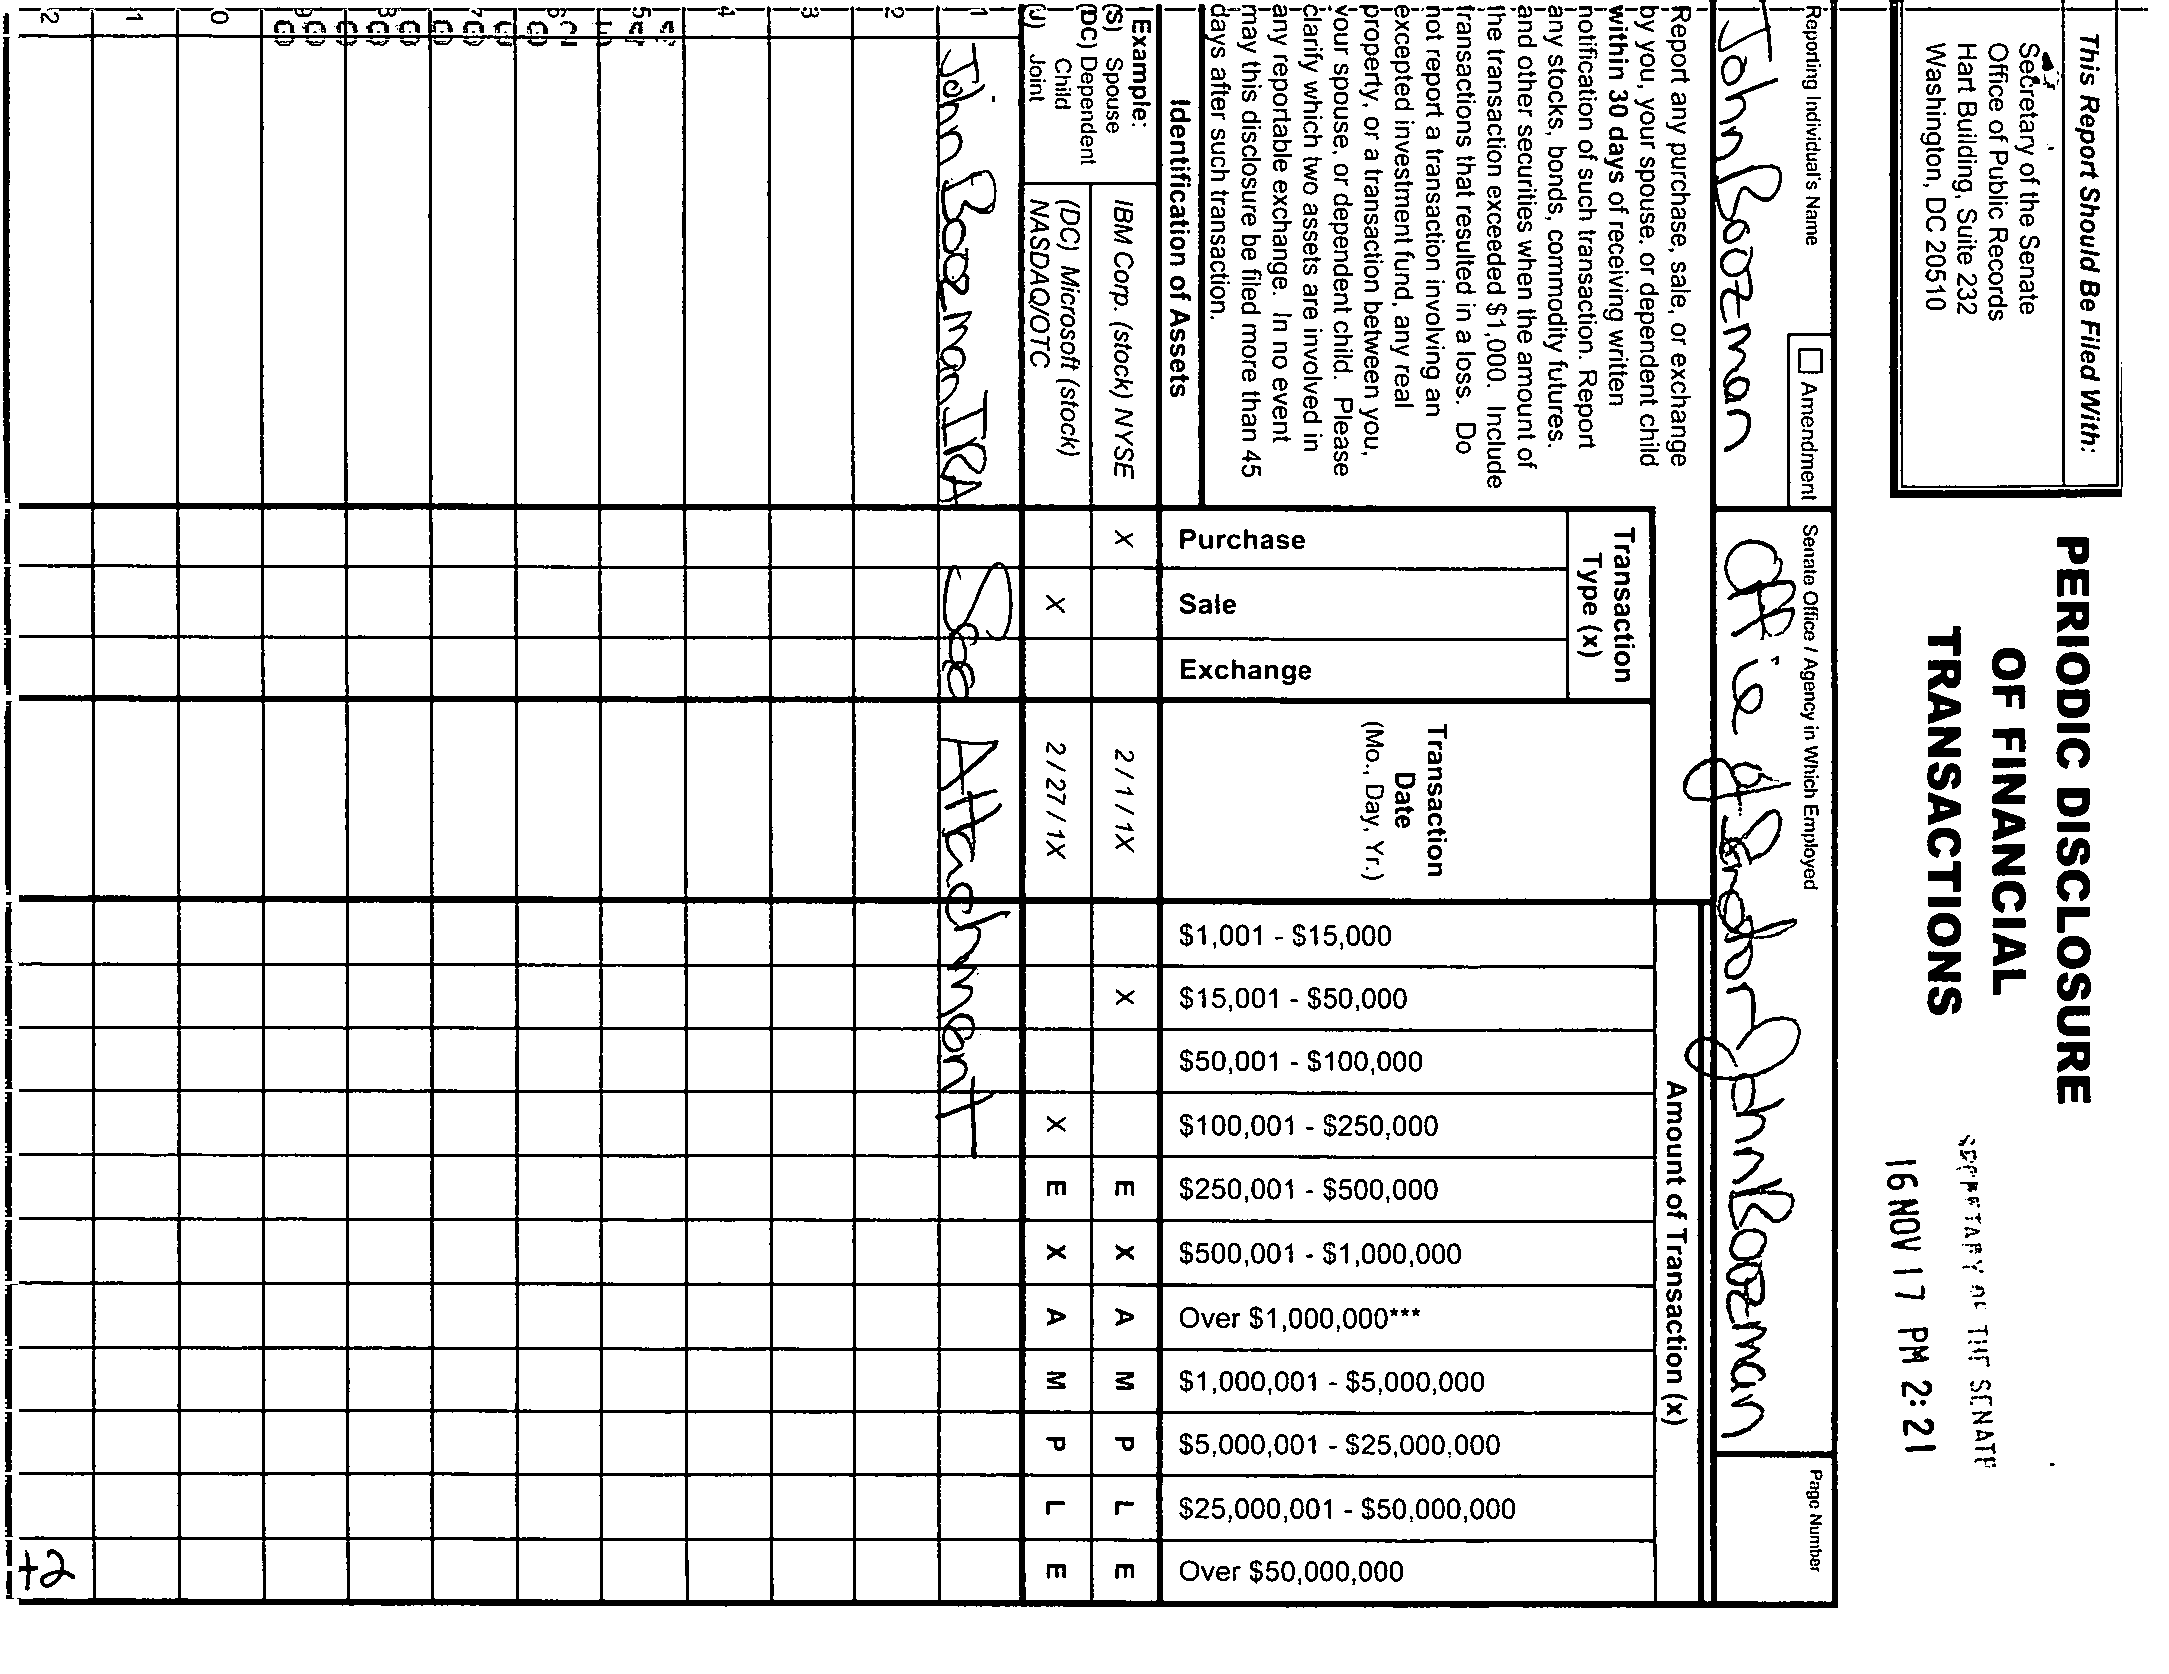 This Report Should Be Filed With:
Secretary of the Senate
Office of Public Records
Hart Building, Suite 232
Washington, DC 20510
PERIODIC DISCLOSURE
OF FINANCIAL
TRANSACTIONS
SECRETARY OF THE SENATE
16 NOV 17 PM 2:21
Reporting Individual's Name
Amendment
John Boozman
Senate Office / Agency in Which Employed
Office of Senator John Boozman
Page Number
Report any purchase, sale, or exchange
by you, your spouse, or dependent child
within 30 days of receiving written
notification of such transaction. Report
any stocks, bonds, commodity futures.
and other securities when the amount of
the transaction exceeded $1,000. Include
transactions that resulted in a loss. Do
not report a transaction involving an
excepted investment fund, any real
property, or a transaction between you,
your spouse, or dependent child. Please
clarify which two assets are involved in
any reportable exchange. In no event
may this disclosure be filed more than 45
days after such transaction.
Transaction
Type (x)
Purchase
Sale
Exchange
Transaction
Date
(Mo., Day, Yr.)
Amount of Transaction (x)
$1,001 - $15,000
$15,001 - $50,000
$50,001 - $100,000
$100,001 - $250,000
$250,001 - $500,000
$500,001 - $1,000,000
Over $1,000,000***
$1,000,001 - $5,000,000
$5,000,001 - $25,000,000
$25,000,001 - $50,000,000
Over $50,000,000
Identification of Assets
Example:
(S) Spouse
(DC) Dependent
Child
(J) Joint
IBM Corp. (stock) NYSE X 2 / 1 / 1X X E X A M P L E
(DC) Microsoft (stock)
NASDAQ/OTC X 2 / 27 / 1X X E X A M P L E
1 John Boozman IRA See Attachment
2
3
4
5
6
7
8
9
0
1
2
+2